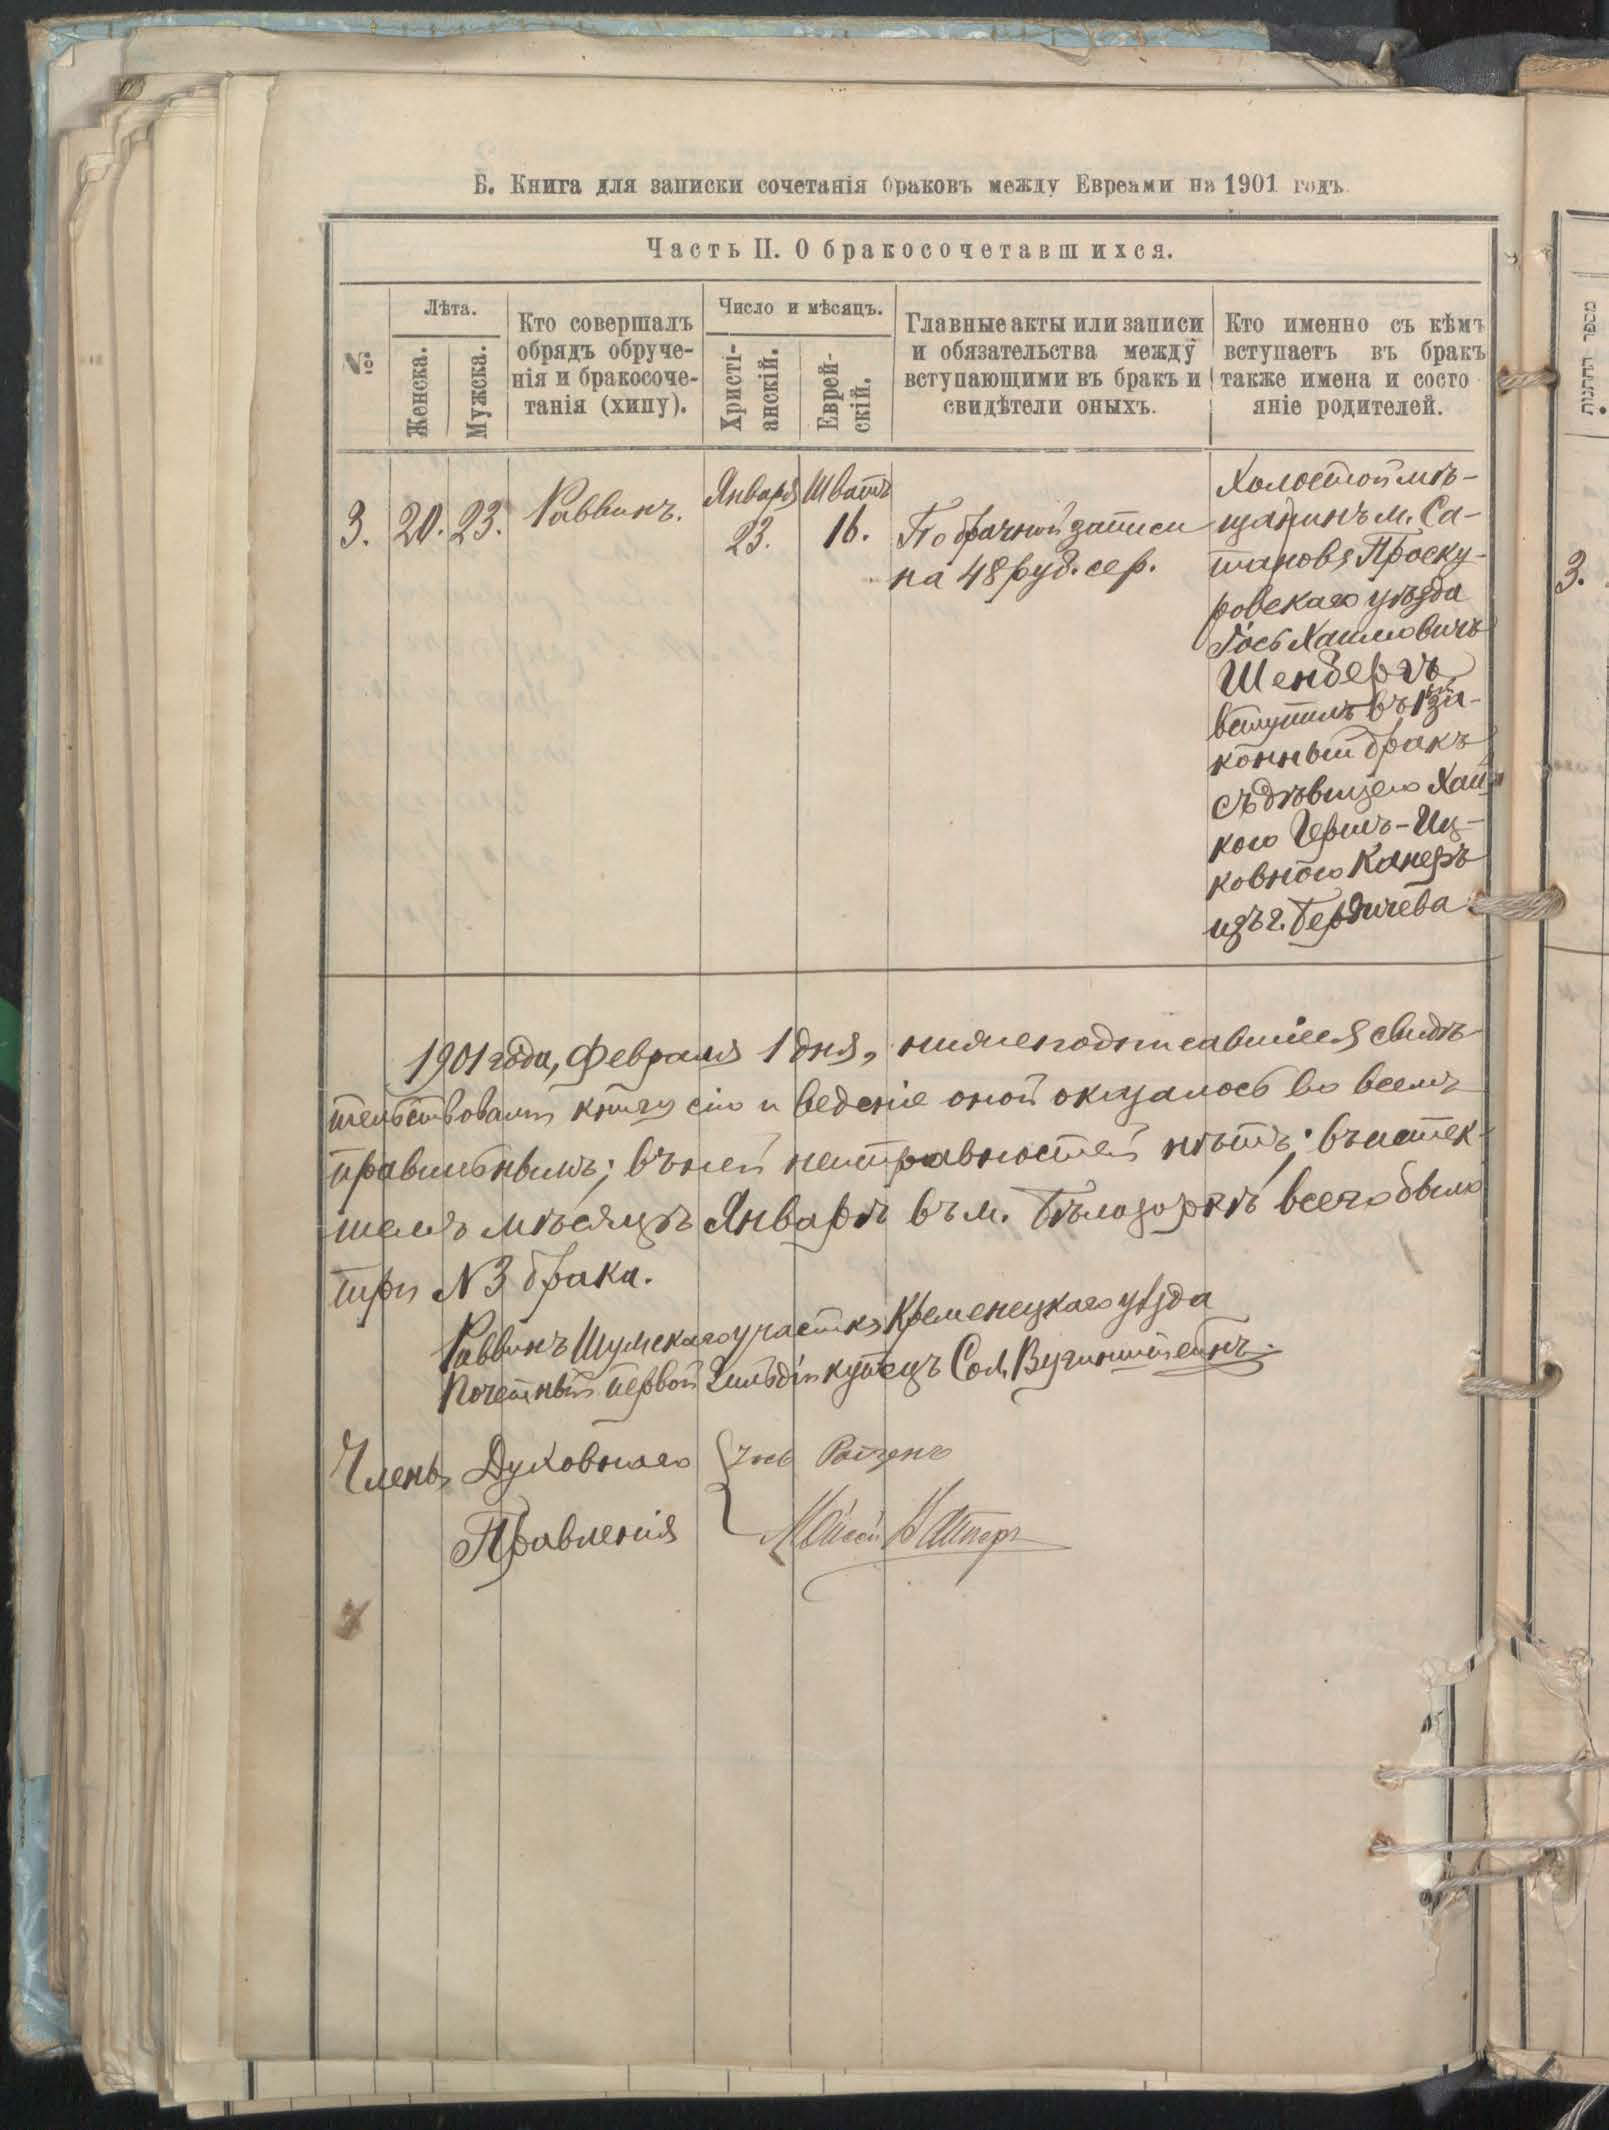 Б. Книга для записки сочетанія браковъ между Евреами на 1901 годъ.
Часть II. О бракосочетавшихся.
№
Лѣта.
Женска.
Мужска.
Кто совершалъ
обрядъ обруче-
нія и бракосоче-
танія (хипу).
Число и мѣсяцъ.
Христі-
анскій.
Еврей-
скій.
Главные акты или записи
и обязательства между
вступающими въ бракъ и
свидѣтели оныхъ.
Кто именно съ кѣмъ
вступаетъ въ бракъ
также имена и состо
яніе родителей.
3.
20.
23.
Раввинъ.
Января
23.
Шватъ
16.
По брачной записи
на 48 руб. сер.
Холостой мѣ-
щанинъ м. Са-
танова Проску-
ровскаго уѣзда
Іось Хаимовичъ
Шенбергъ
вступилъ въ 1ый за-
конный бракъ
съ дѣвицею Хай-
кою Гершъ-Иц-
ковною Канеръ
изъ г. Бердичева
1901 года, Февраля 1 дня, нижеподписавшіеся свидѣ-
тельствовали книгу сію и веденіе оной оказалось во всемъ
правильнымъ; въ ней неисправностей нѣтъ; въ истек-
шемъ мѣсяцѣ Январѣ въ м. Бѣлозоркѣ всего было
три №3 брака.
Раввинъ Шумскаго участка Кременецкаго уѣзда
Почетный первой гильдіи купецъ Сол.
Члены Духовнаго
Правленія
3.